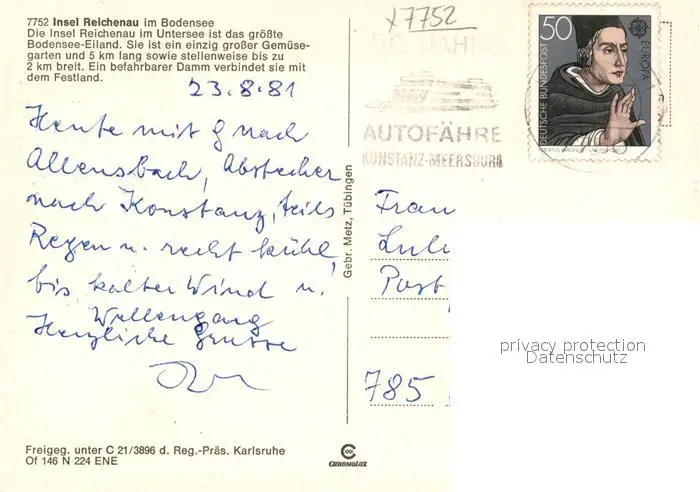 7752 Insel Reichenau im Bodensee
Die Insel Reichenau im Untersee ist das größte
Bodensee-Eiland. Sie ist ein einzig großer Gemüse-
garten und 5 km lang sowie stellenweise bis zu
2 km breit. Ein befahrbarer Damm verbindet sie mit
dem Festland.
23.8.81
Heute mit nach
Allensbach, Abstecher
nach Konstanz, teils
Regen u. recht kühl,
bis kalter Wind u.
Wellengang
Herzliche Grüsse
Freigeg. unter C 21/3896 d. Reg.-Präs. Karlsruhe
Of 146 N 224 ENE
Gebr. Metz, Tübingen
CHROMOLUX
x7752
JAHRE
AUTOFÄHRE
KONSTANZ-MEERSBURG
50
DEUTSCHE BUNDESPOST
EUROPA
Frau
Post
785
privacy protection
Datenschutz